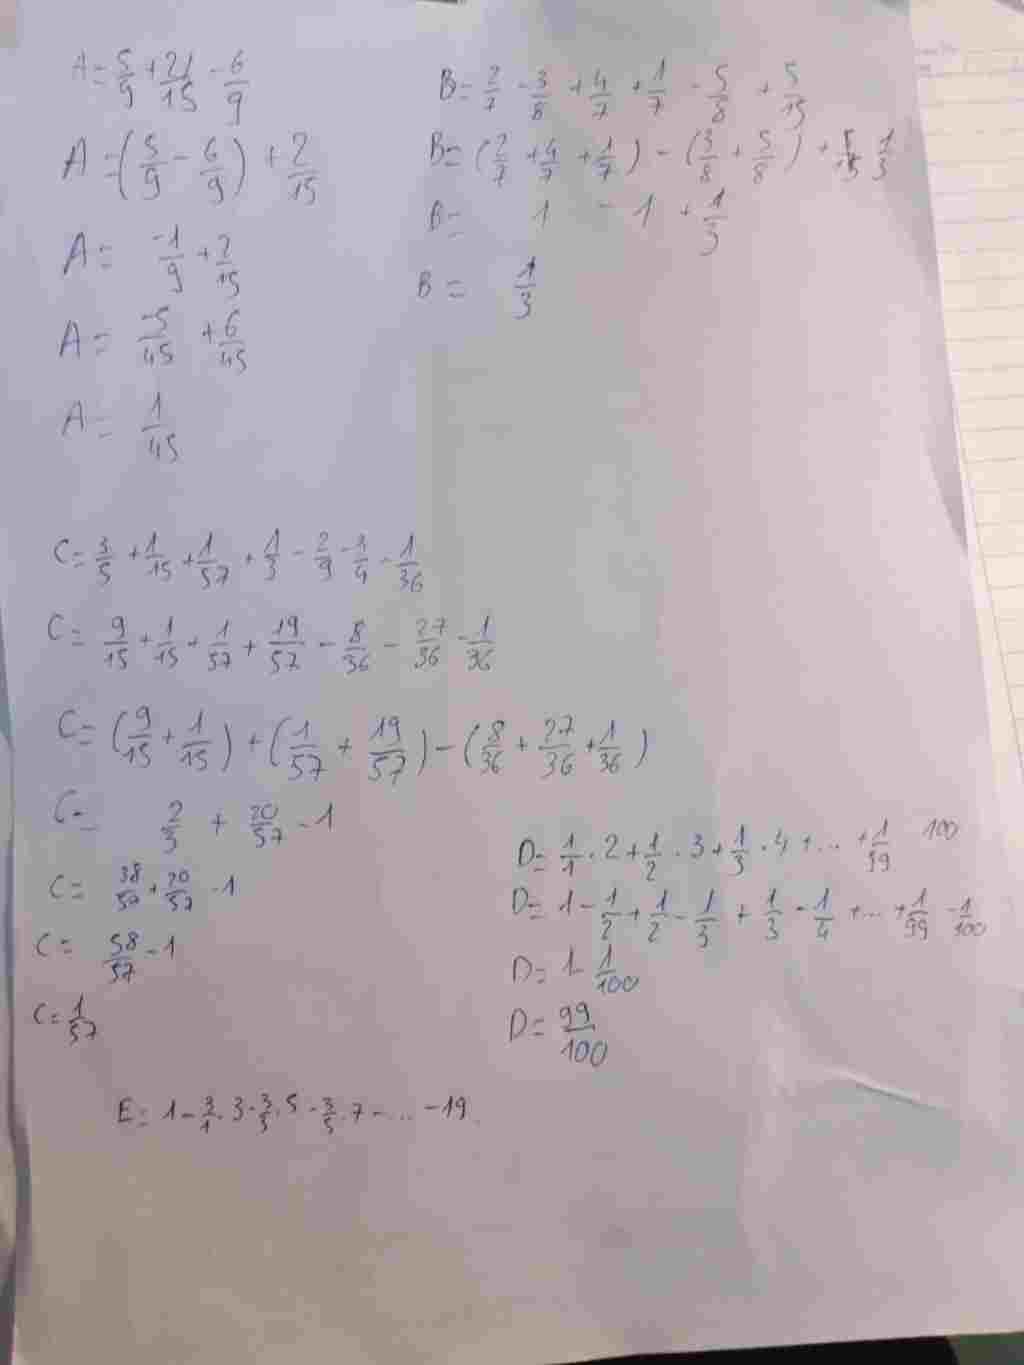 A = 5/9 + 21/15 - 6/9
A = (5/9 - 6/9) + 2/15
A = -1/9 + 2/15
A = -5/45 + 6/45
A = 1/45
B = 2/7 - 3/8 + 4/7 + 1/7 - 5/8 + 5/15
B = (2/7 + 4/7 + 1/7) - (3/8 + 5/8) + 5/15 1/3
B = 1 - 1 + 1/3
B = 1/3
C = 3/5 + 1/15 + 1/57 + 1/3 - 2/9 - 3/4 - 1/36
C = 9/15 + 1/15 + 1/57 + 19/57 - 8/36 - 27/36 - 1/36
C = (9/15 + 1/15) + (1/57 + 19/57) - (8/36 + 27/36 + 1/36)
C = 2/3 + 20/57 - 1
C = 38/57 + 20/57 - 1
C = 58/57 - 1
C = 1/57
D = 1/1 . 2 + 1/2 . 3 + 1/3 . 4 + ... + 1/99 100
D = 1 - 1/2 + 1/2 - 1/3 + 1/3 - 1/4 + ... + 1/99 - 1/100
D = 1 - 1/100
D = 99/100
E = 1 - 3/1 . 3 - 3/3 . 5 - 3/5 . 7 - ... - 19